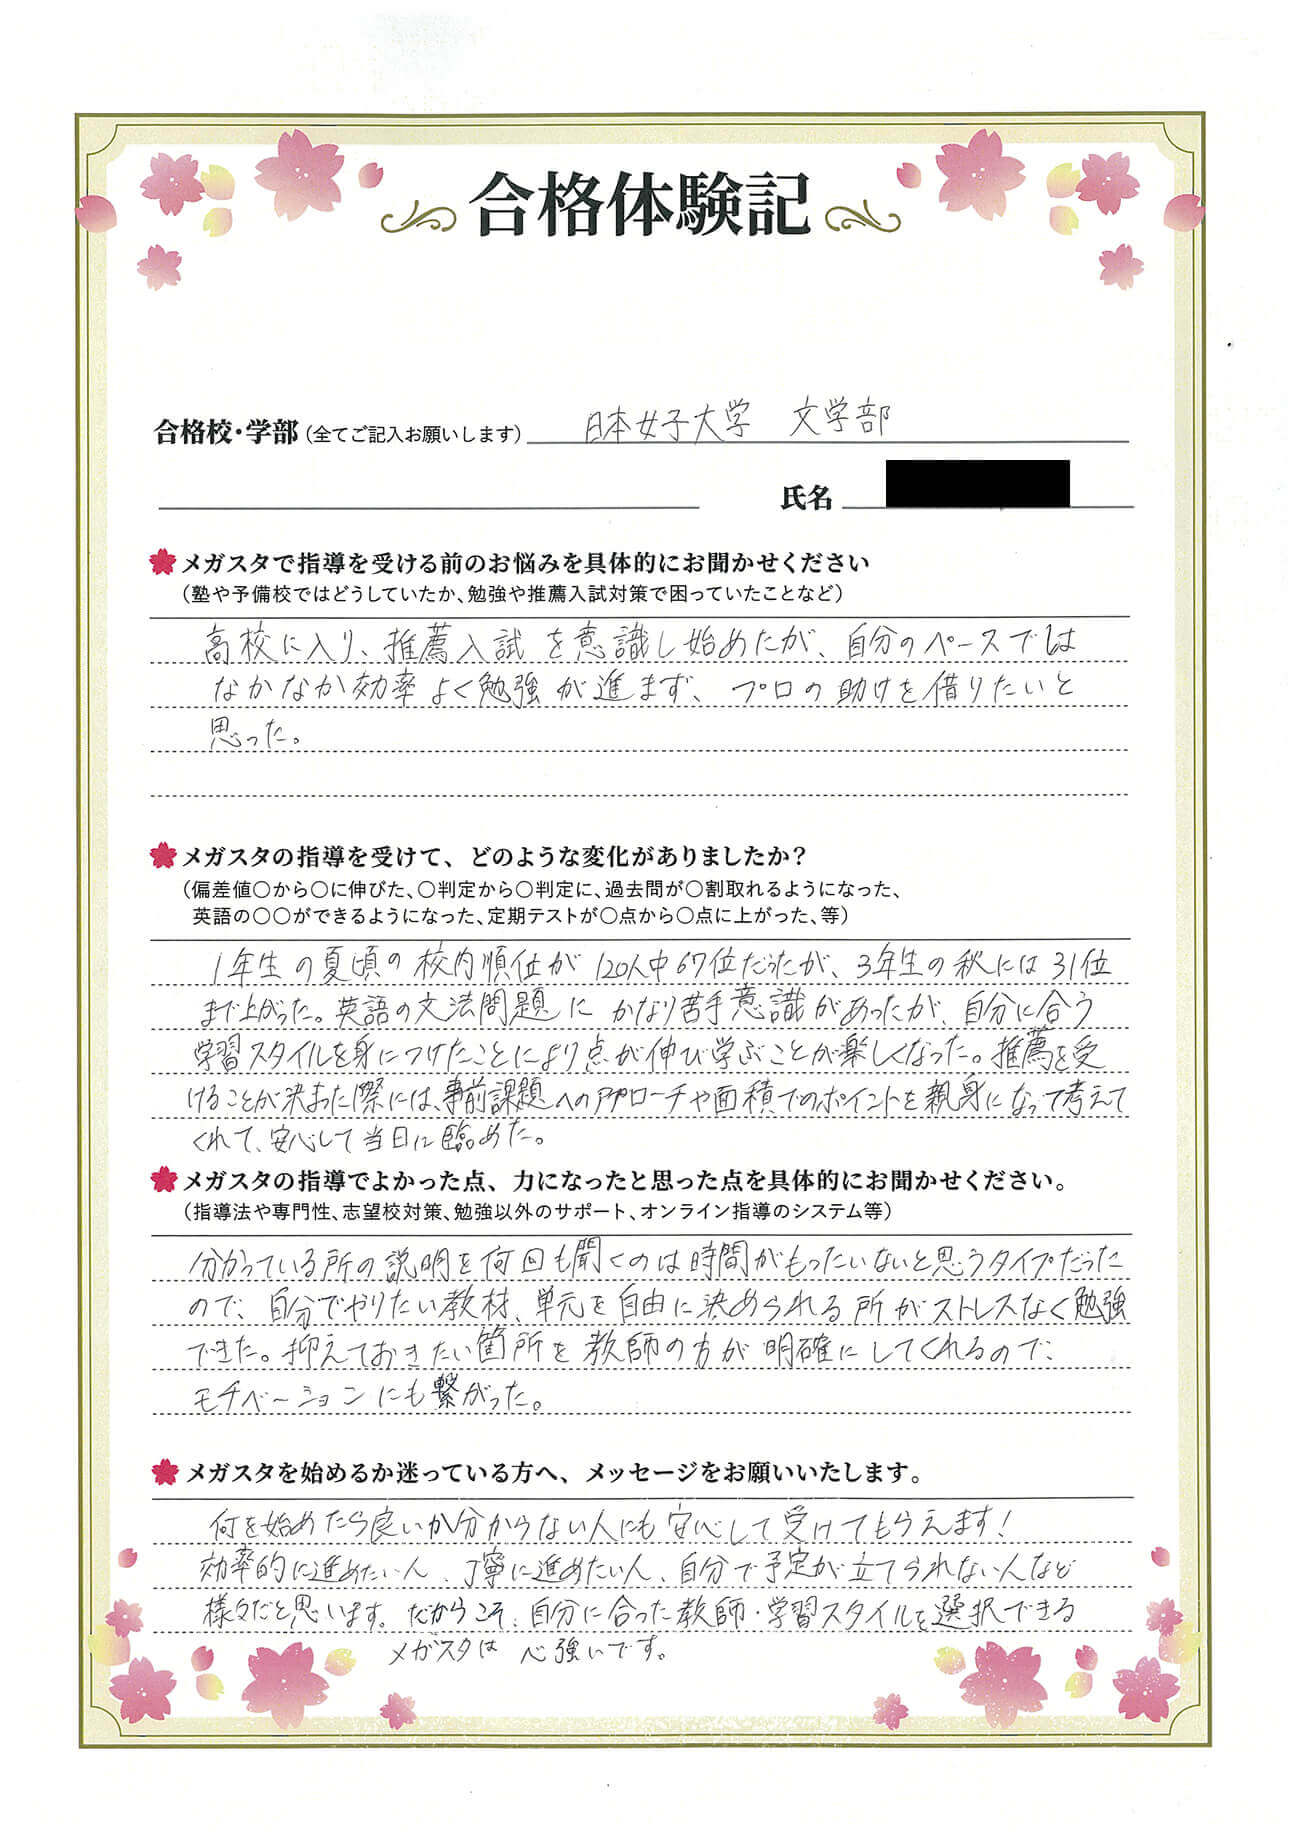 合格体験記
合格校・学部(全てご記入お願いします) 日本女子大学 文学部
氏名
メガスタで指導を受ける前のお悩みを具体的にお聞かせください
(塾や予備校ではどうしていたか、勉強や推薦入試対策で困っていたことなど)
高校に入り、推薦入試を意識し始めたが、自分のペースでは
なかなか効率よく勉強が進まず、プロの助けを借りたいと
思った。
メガスタの指導を受けて、どのような変化がありましたか?
(偏差値〇から〇に伸びた、〇判定から〇判定に、過去問が〇割取れるようになった、
英語の〇〇ができるようになった、定期テストが〇点から〇点に上がった、等)
1年生の夏頃の校内順位が120人中67位だったが、3年生の秋には31位
まで上がった。英語の文法問題にかなり苦手意識があったが、自分に合う
学習スタイルを身につけたことにより点が伸び学ぶことが楽しくなった。推薦を受
けることが決まった際には、事前課題へのアプローチや面積でのポイントを親身になって考えて
くれて、安心して当日に臨めた。
メガスタの指導でよかった点、力になったと思った点を具体的にお聞かせください。
(指導法や専門性、志望校対策、勉強以外のサポート、オンライン指導のシステム等)
分かっている所の説明を何回も聞くのは時間がもったいないと思うタイプだった
ので、自分でやりたい教材、単元を自由に決められる所がストレスなく勉強
できた。抑えておきたい箇所を教師の方が明確にしてくれるので、
モチベーションにも繋がった。
メガスタを始めるか迷っている方へ、メッセージをお願いいたします。
何を始めたら良いか分からない人にも安心して受けてもらえます!
効率的に進めたい人、丁寧に進めたい人、自分で予定が立てられない人など
様々だと思います。だからこそ、自分に合った教師・学習スタイルを選択できる
メガスタは心強いです。